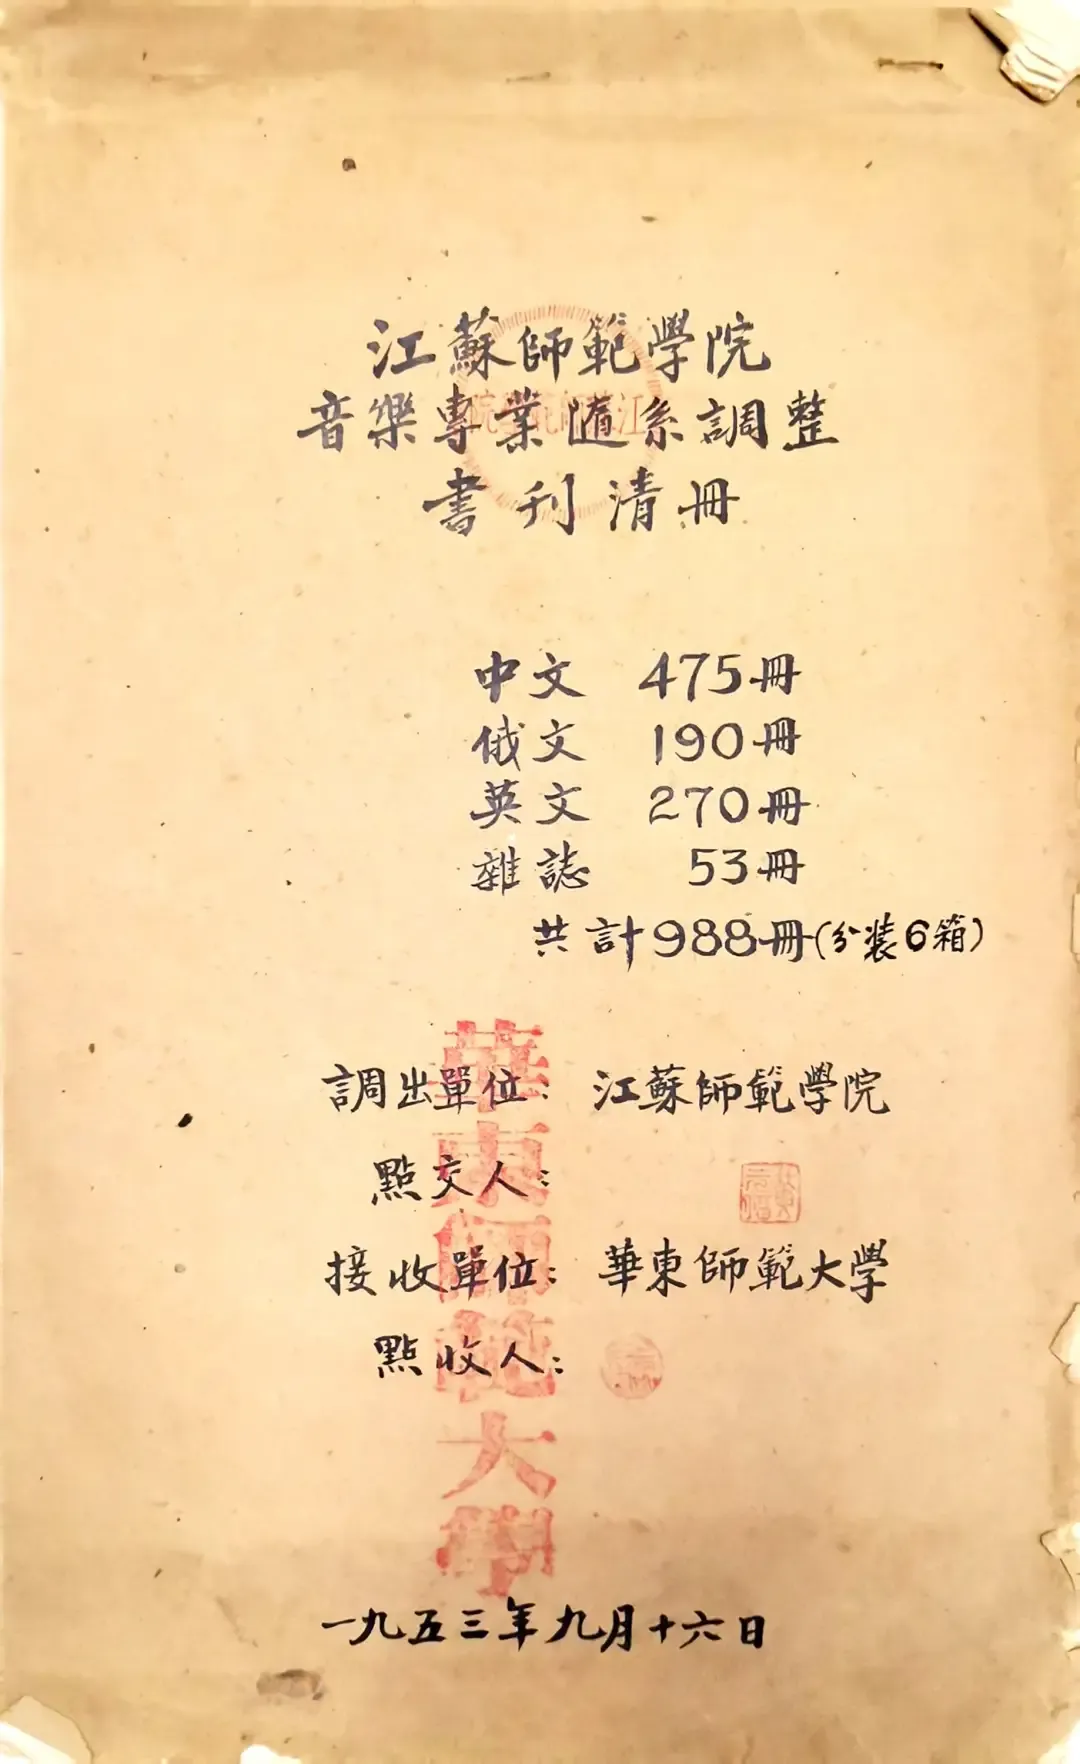 江蘇師範學院
音樂專業隨系調整
書刊清冊
江蘇師範學院
中文 475冊
俄文 190冊
英文 270冊
雜誌 53冊
共計988冊(分装6箱)
調出單位: 江蘇師範學院
點交人:
接收單位: 華東師範大學
點收人:
華東師範大學
一九五三年九月十六日